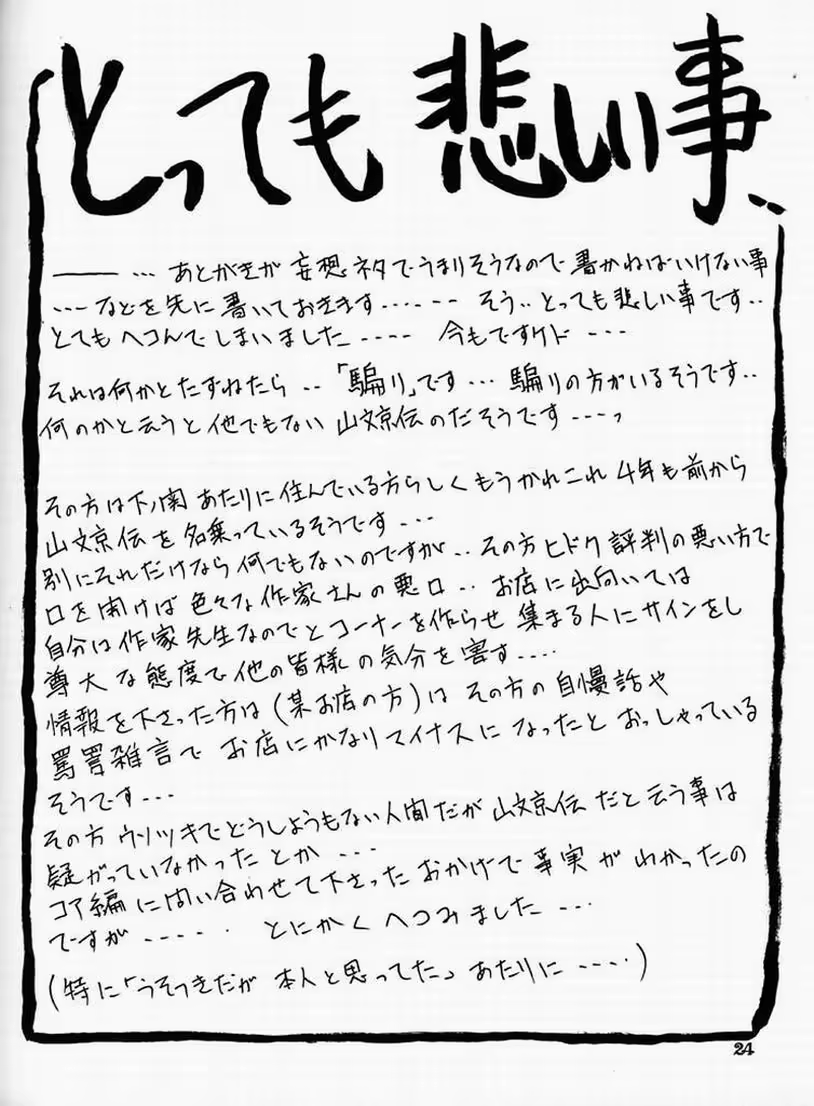 とっても悲しい事‥
―― … あとがきが 妄想ネタでうまりそうなので 書かねばいけない事
… などを先に書いておきます……--- そう‥とっても悲しい事です‥
とても ヘコんでしまいました ---- 今もですケド ---
それは何かとたずねたら ‥ 「騙り」です… 騙りの方がいるそうです‥
何のかと云うと他でもない 山文京伝のだそうです ---っ
その方は下ノ関 あたりに住んでいる方らしくもうかれこれ 4年も前から
山文京伝を名乗っているそうです ---
別にそれだけなら何でもないのですが‥ その方ヒドク評判の悪い方で
口を開けば 色々な作家さんの悪口‥ お店に出向いては
自分は作家先生なのでとコーナーを作らせ 集まる人にサインをし
尊大な態度で他の皆様の気分を害す‥‥
情報を下さった方は(某お店の方)は その方の自慢話や
罵詈雑言で お店にかなりマイナスに なったと おっしゃっている
そうです---
その方 ウソツキでどうしようもない人間だが 山文京伝だと云う事は
疑がっていなかったとか ---
コア編に問い合わせて下さったおかげで 事実が わかったの
ですが ----・ とにかく へコみました ---
(特に「うそつきだが 本人と思ってた」あたりに ----)
24